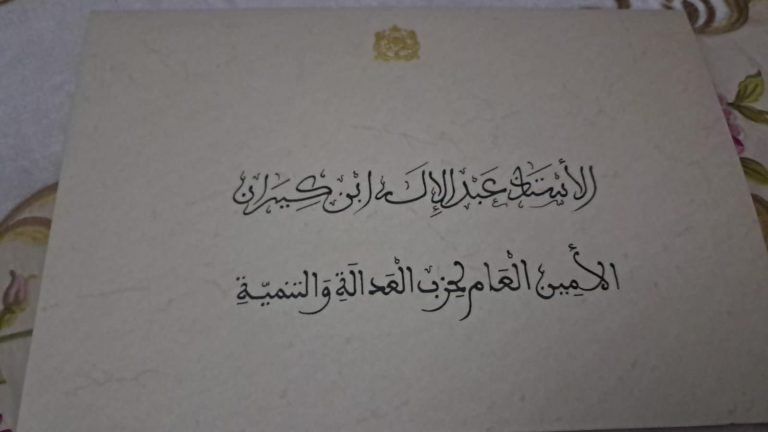 الأسْتَاذ عَبْد الإِلَه ابْن كِيرَان
الأَمِين الْعَام لِحِزْب الْعَدالَةِ وَالتنميّةِ